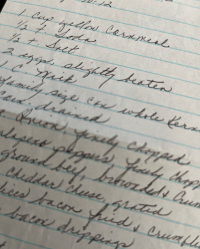 12
1 cup yellow cornmeal
1/2 t Soda
1/2 t Salt
2 eggs, slightly beaten
1 C. Milk
family size can whole Kern
Corn, drained
Onion, finely chopped
peppers, finely chopp
ground beef, browned & crum
cheddar cheese, grated
bacon fried & crumble
bacon drippings